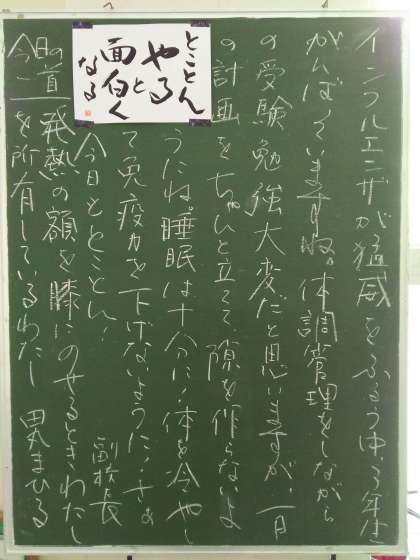 とことん
やると
面白く
なる
インフルエンザが猛威をふるう中、3年生は
がんばっていますね。体調管理をしながら
の受験勉強大変だと思いますが、一日
の計画をちゃんと立てて隙を作らないよ
うにね。睡眠は十分に!体を冷やし
て免疫力を下げないように!さぁ
今日もとことん! 副校長
今日の 発熱の額を膝にのせるときわたし
を所有しているわたし 田丸まひる